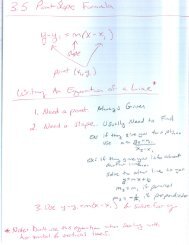 3.5 Point Slope Formula
y-y₁ = m(x-x₁)
slope
point (x₁, y₁)
Writing An Equation of a Line*
1. Need a point. Always Given
2. Need a slope. Usually Need to Find
Ex: if they give you two points
Use m = y₂-y₁ / x₂-x₁
Ex: if they give you info about
another line
Solve the other line to get
y = mx + b
m₂ = m₁ if parallel
if perpendicular
3. Use y-y₁ = m(x-x₁) & solve for y
* Note: Don't use the equation when dealing with
horizontal & vertical lines